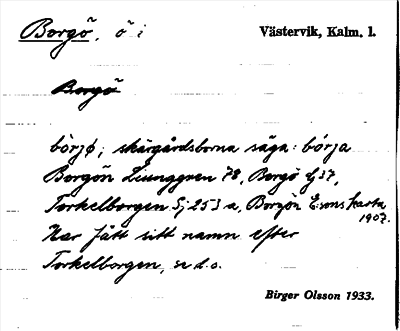 Borgö, ö i Västervik, Kalm. l.
Borgö
börjø; skärgårdsborna säga: börja
Borgön Ljunggren 78, Borgö G 37,
Torkelborgen Sj 253 a, Borgön E:sons karta
1907.
Har fått sitt namn efter
Torkelborgen, se d. o.
Birger Olsson 1933.